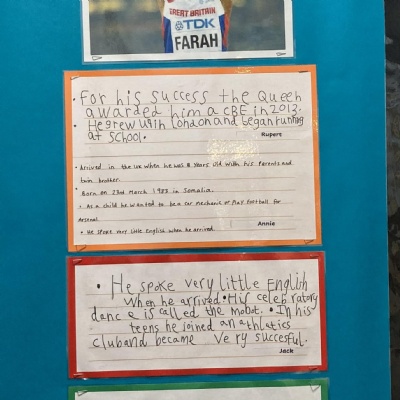 GREAT BRITAIN
TDK
FARAH
• For his success the Queen
awarded him a CBE in 2013.
• He grew up in London and began running
at School.
Rupert
• Arrived in the UK when he was 8 years old with his parents and
twin brother.
• Born on 23rd March 1983 in Somalia.
• As a child he wanted to be a car mechanic or Play football for
Arsenal.
• He spoke very little English when he arrived.
Annie
• He spoke very little English
when he arrived. • His celebratory
dance is called the mobot. • In his
teens he joined an athletics
club and became very succesful.
Jack